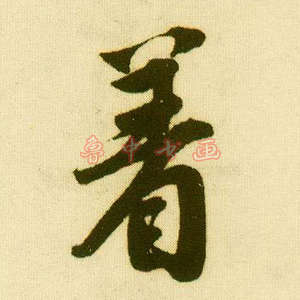 着
鲁中书画